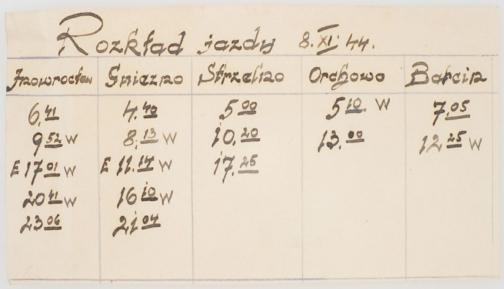 Rozkład jazdy 8.XI.44.
Inowrocław Gniezno Strzelno Orchowo Barcin
6.41 4.40 5.00 5.10 W 7.05
9.52 W 8.13 W 10.20 13.00 12.25 W
E 17.01 W E 11.17 W 17.25
20.41 W 16.10 W
23.06 21.04